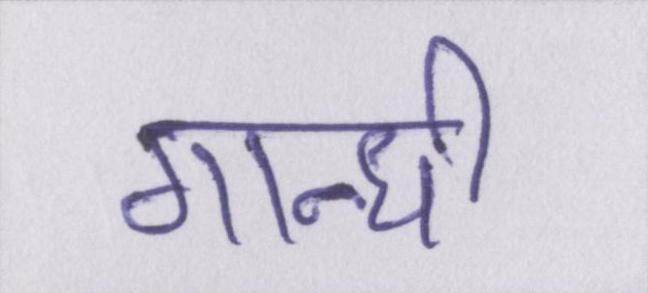 गान्धी